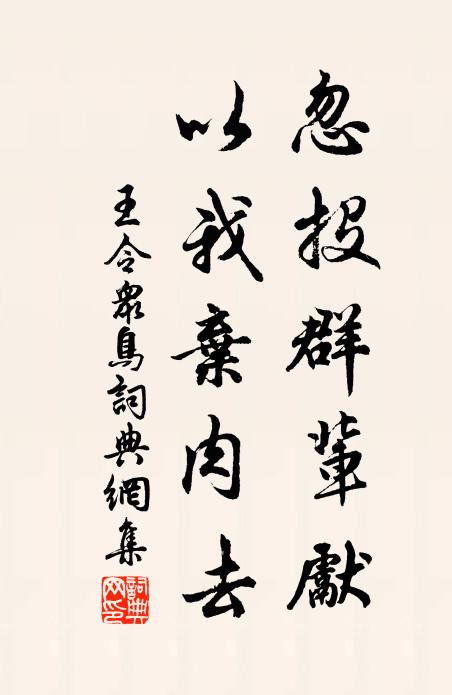 忽投群輩獻
以我棄肉去
王令衆鳥詞典網集
詞典
网印